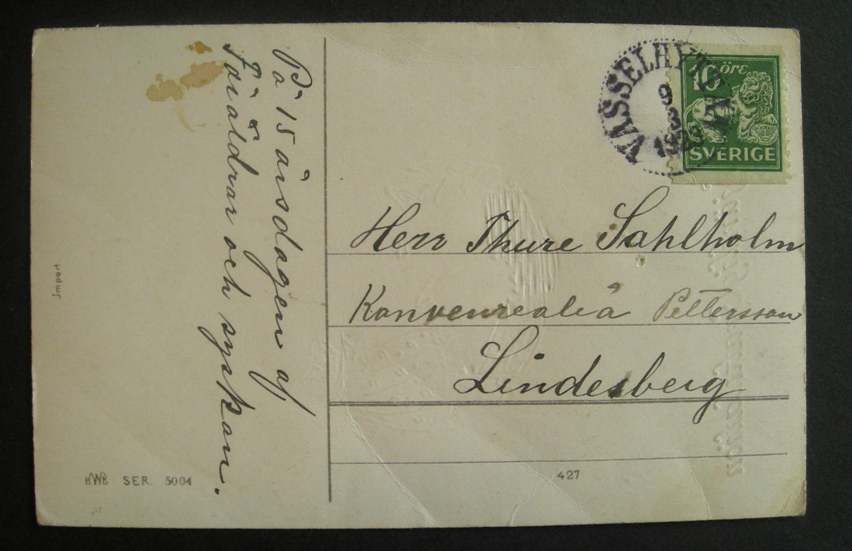 På 15 årsdagen af
Föräldrar och syskon.
Import
HWB SER. 5004
VASSELHYTTAN
9
3
10 ÖRE
SVERIGE
Herr Thure Sahlholm
Pettersson
Lindesberg
427